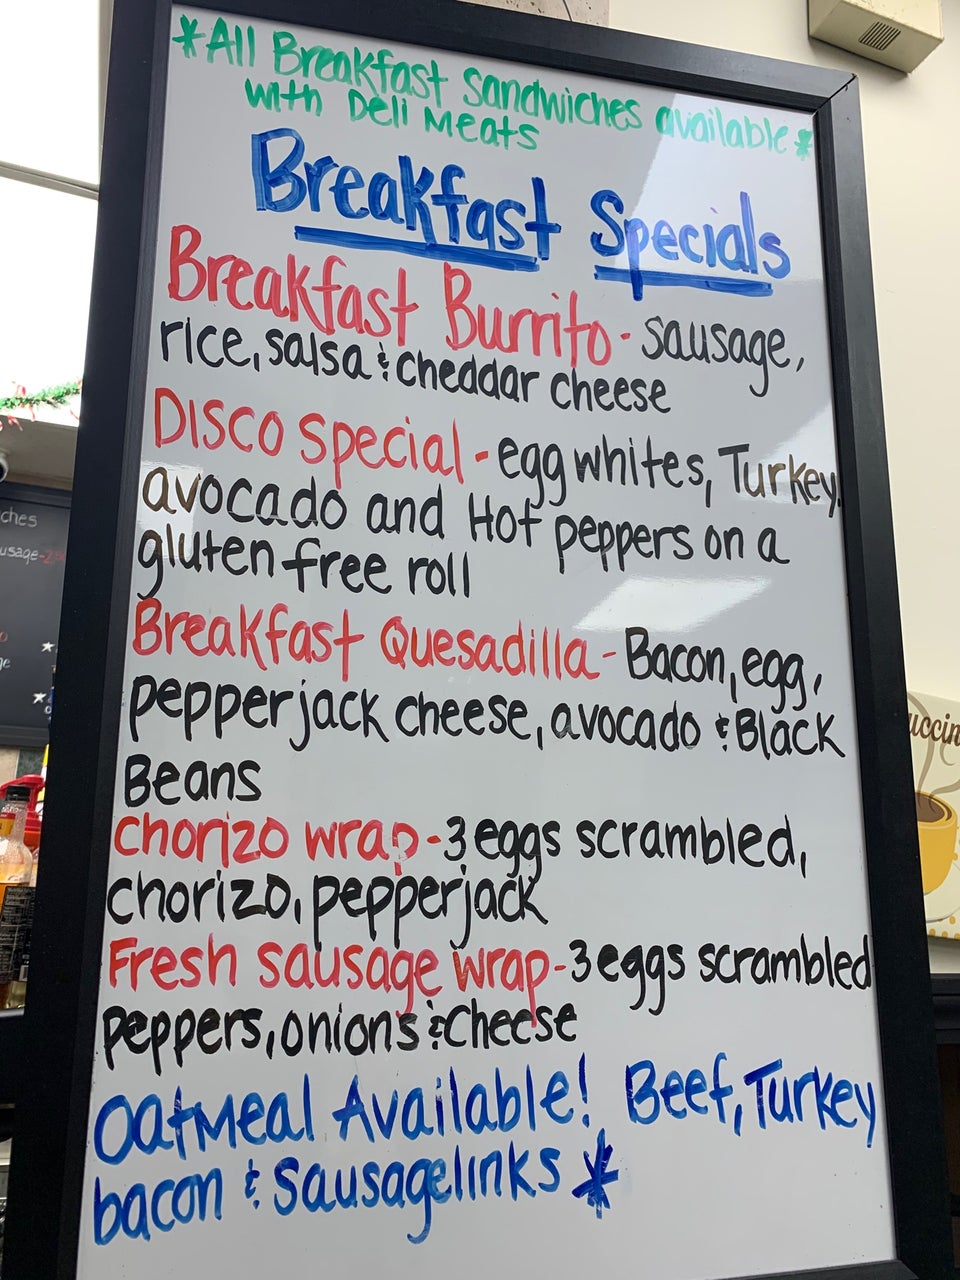 *All Breakfast Sandwiches available*
with Deli Meats
Breakfast Specials
Breakfast Burrito - sausage,
rice, salsa & cheddar cheese
DISCO Special - egg whites, Turkey,
avocado and Hot peppers on a
gluten free roll
Breakfast Quesadilla - Bacon, egg,
pepperjack cheese, avocado & Black
Beans
Chorizo wrap - 3 eggs scrambled,
chorizo, pepperjack
Fresh sausage wrap - 3 eggs scrambled
peppers, onions & cheese
Oatmeal Available! Beef, Turkey
bacon & Sausage links *
ches
usage-2
ge
uccin